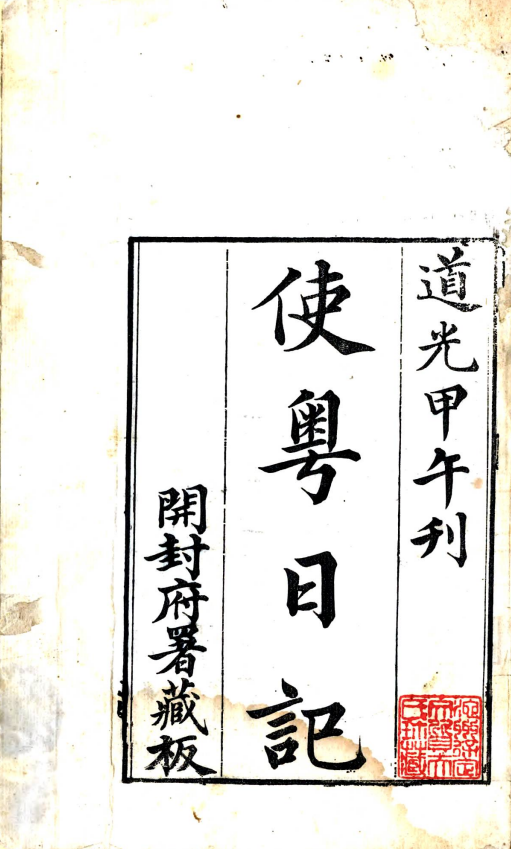 道光甲午刊
使粵日記
開封府署藏板